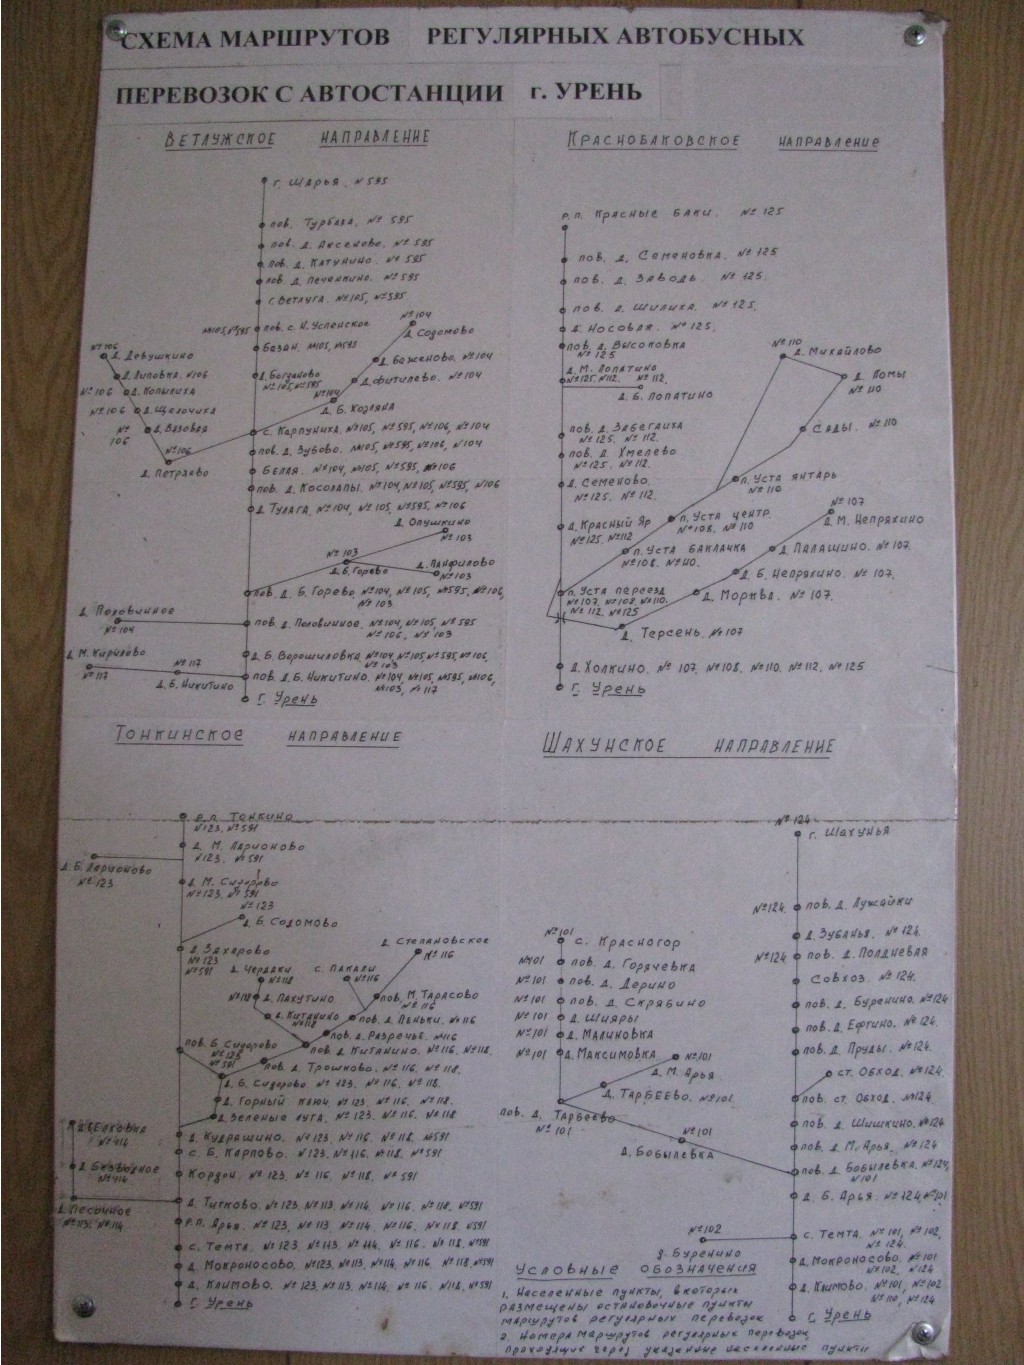 СХЕМА МАРШРУТОВ РЕГУЛЯРНЫХ АВТОБУСНЫХ
ПЕРЕВОЗОК С АВТОСТАНЦИИ г. УРЕНЬ
ВЕТЛУЖСКОЕ НАПРАВЛЕНИЕ
г. ШАРЬЯ. №595
пов. ТУРБАЗА. №595
пов. д. АКСЕНОВО. №595
пов. д. КАТУНИНО №595
пов. д. ПЕЧЕНКИНО. №595
г. ВЕТЛУГА. №105, №595
№105, №595 пов. с. Н. УСПЕНСКОЕ
БАЗАН. №105, №595
д. БОГДАНОВО
№105, №595
№104
д. СОДОМОВО
д. БАЖЕНОВО. №104
д. ФИТИЛЕВО. №104
№104
д. Б. КОЗЛЯНА
№106
д. ДЕВУШКИНО
д. ЛИПОВКА. №106
№106 д. КОПЫЛИХА
№106 д. ЩЕЛОЧИХА
№106 д. ВЯЗОВАЯ
№106
д. ПЕТРЯЕВО
с. КАРПУНИХА. №105, №595, №106, №104
пов. д. ЗУБОВО. №105, №595, №106, №104
БЕЛАЯ. №104, №105, №595, №106
пов. д. КОСОЛАПЫ. №104, №105, №595, №106
д. ТУЛАГА. №104, №105, №595, №106
д. ОПУШКИНО
№103
№103
д. Б. ГОРЕВО
д. ПАНФИЛОВО
№103
пов. д. Б. ГОРЕВО. №104, №105, №595, №106,
№103
д. ПОЛОВИННОЕ
№104
пов. д. ПОЛОВИННОЕ. №104, №105, №595
№106, №103
д. Б. ВОРОШИЛОВКА. №104, №105, №595, №106,
№103
д. М. КИРИЛОВО
№117
№117
д. Б. НИКИТИНО
пов. д. Б. НИКИТИНО. №104, №105, №595, №106,
№103, №117
г. УРЕНЬ
КРАСНОБАКОВСКОЕ НАПРАВЛЕНИЕ
р.п. КРАСНЫЕ БАКИ. №125
пов. д. СЕМЕНОВКА. №125
пов. д. ЗАВОДЬ. №125.
пов. д. ШИЛИХА. №125.
д. НОСОВАЯ. №125.
пов. д. ВЫСОКОВКА
№125
д. М. ЛОПАТИНО
№125, №112. №112.
д. Б. ЛОПАТИНО
пов. д. ЗАБЕГАИХА
№125. №112.
пов. д. ХМЕЛЕВО
№125. №112.
д. СЕМЕНОВО
№125. №112.
д. КРАСНЫЙ ЯР
№125. №112
№110
д. МИХАЙЛОВО
д. ЛОМЫ
№110
САДЫ. №110
п. УСТА ЯНТАРЬ
№110
п. УСТА ЦЕНТР.
№108, №110
п. УСТА БАКЛАЧКА
№108. №110.
п. УСТА ПЕРЕЕЗД
№107, №108. №110.
№112. №125
№107
д. М. НЕПРЯХИНО
д. ПАЛАШИНО. №107.
д. Б. НЕПРЯХИНО. №107.
д. МОРКВА. №107.
д. ТЕРСЕНЬ. №107
д. ХОЛКИНО. №107, №108, №110, №112, №125
г. УРЕНЬ
ТОНКИНСКОЕ НАПРАВЛЕНИЕ
р.п. ТОНКИНО
№123, №591
д. М. ЛАРИОНОВО
№123. №591
д. Б. ЛАРИОНОВО
№123
д. М. СИДОРОВО
№123, №591
№123
д. Б. СОДОМОВО
д. ЗАХАРОВО
№123
№591
д. СТЕПАНОВСКОЕ
№116
д. ЧЕРДАКИ
№118
с. ПАКАЛИ
№116
№118 д. ПАХУТИНО
пов. М. ТАРАСОВО
№116
д. КИТАНИНО
№118
пов. д. ПЕНЬКИ. №116
пов. д. РАЗРЕЧЬЕ. №116
пов. д. КИТАНИНО. №116. №118.
пов. Б. СИДОРОВО
№123
№591
пов. д. ТРОШКОВО. №116. №118.
д. Б. СИДОРОВО №123. №116. №118.
д. ГОРНЫЙ КЛЮЧ. №123. №116. №118.
д. ЗЕЛЕНЫЕ ЛУГА. №123. №116. №118
д. КУДРЯШИНО. №123. №116. №118. №591
с. Б. КАРПОВО. №123. №116. №118. №591
КОРДОН. №123. №116. №118, №591
№414
д. БЕЗВОДНОЕ
№414
д. ПЕСОЧНОЕ
№113. №114
д. ТИТКОВО. №123. №113. №114. №116. №118. №591
р.п. АРЬЯ. №123, №113. №114. №116. №118. №591
с. ТЕМТА. №123. №113. №114. №116. №118. №591
д. МОКРОНОСОВО. №123. №113. №114. №116. №118. №591
д. КЛИМОВО. №123. №113. №114. №116. №118. №591
г. УРЕНЬ
ШАХУНСКОЕ НАПРАВЛЕНИЕ
№124
г. ШАХУНЬЯ
№124. пов. д. ЛУЖАЙКИ
д. ЗУБАНЬЯ. №124.
№124 пов. д. ПОЛДНЕВАЯ
СОВХОЗ. №124.
пов. д. БУРЕНИНО. №124
пов. д. ЕФГИНО. №124.
пов. д. ПРУДЫ. №124.
ст. ОБХОД. №124.
пов. ст. ОБХОД. №124.
пов. д. ШИШКИНО. №124
пов. д. М. АРЬЯ. №124
пов. д. БОБЫЛЕВКА. №124,
№101
д. Б. АРЬЯ. №124, №101
№101
с. КРАСНОГОР
№101 пов. д. ГОРЯЧЕВКА
№101 пов. д. ДЕРИНО
№101 пов. д. СКРЯБИНО
№101 д. ШИЯРЫ
№101 д. МАЛИНОВКА
№101 д. МАКСИМОВКА
№101
д. М. АРЬЯ.
д. ТАРБЕЕВО. №101.
пов. д. ТАРБЕЕВО
№101
№101
д. БОБЫЛЕВКА
№102
д. БУРЕНИНО
с. ТЕМТА. №101, №102,
№124.
д. МОКРОНОСОВО. №101
№102, №124
д. КЛИМОВО. №101, №102
№110, №124
г. УРЕНЬ
УСЛОВНЫЕ ОБОЗНАЧЕНИЯ
1. НАСЕЛЕННЫЕ ПУНКТЫ, В КОТОРЫХ
РАЗМЕЩЕНЫ ОСТАНОВОЧНЫЕ ПУНКТЫ
МАРШРУТОВ РЕГУЛЯРНЫХ ПЕРЕВОЗОК
2. НОМЕРА МАРШРУТОВ РЕГУЛЯРНЫХ ПЕРЕВОЗОК,
ПРОХОДЯЩИХ ЧЕРЕЗ УКАЗАННЫЕ НАСЕЛЕННЫЕ ПУНКТЫ